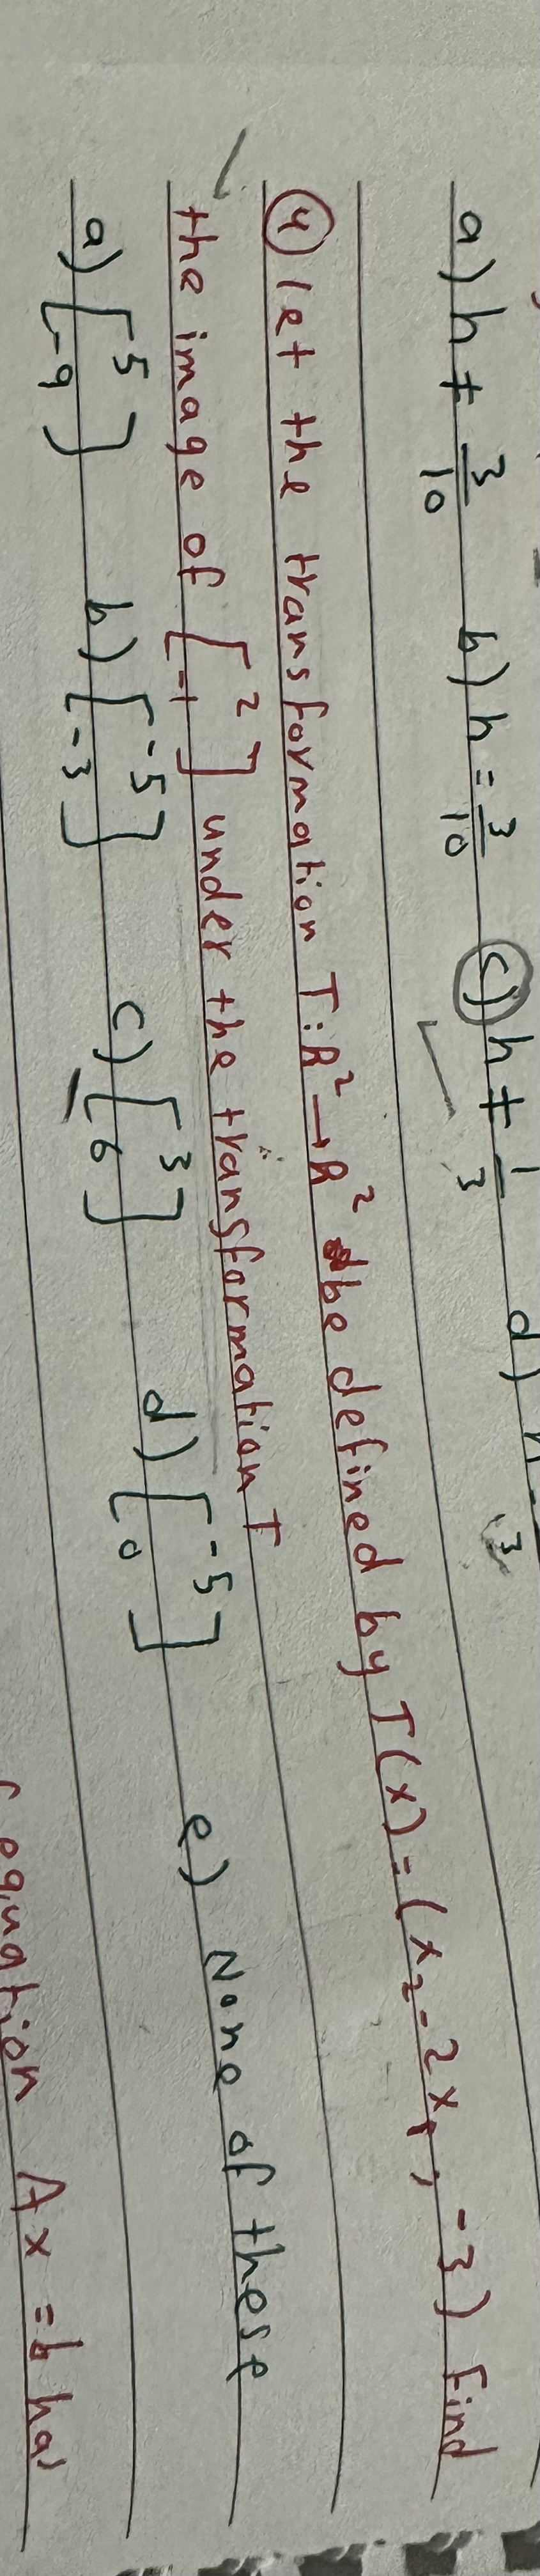 a) h ≠ 3/10 b) h = 3/10 c) h ≠ 1/3 d) h
④ let the transformation T: R² → R² be defined by T(x) = (x₂ - 2x₁, -3) Find
the image of [2 -1] under the transformation T
a) [5 -9] b) [-5 -3] c) [3 6] d) [-5 0] e) None of these
equation Ax = b has